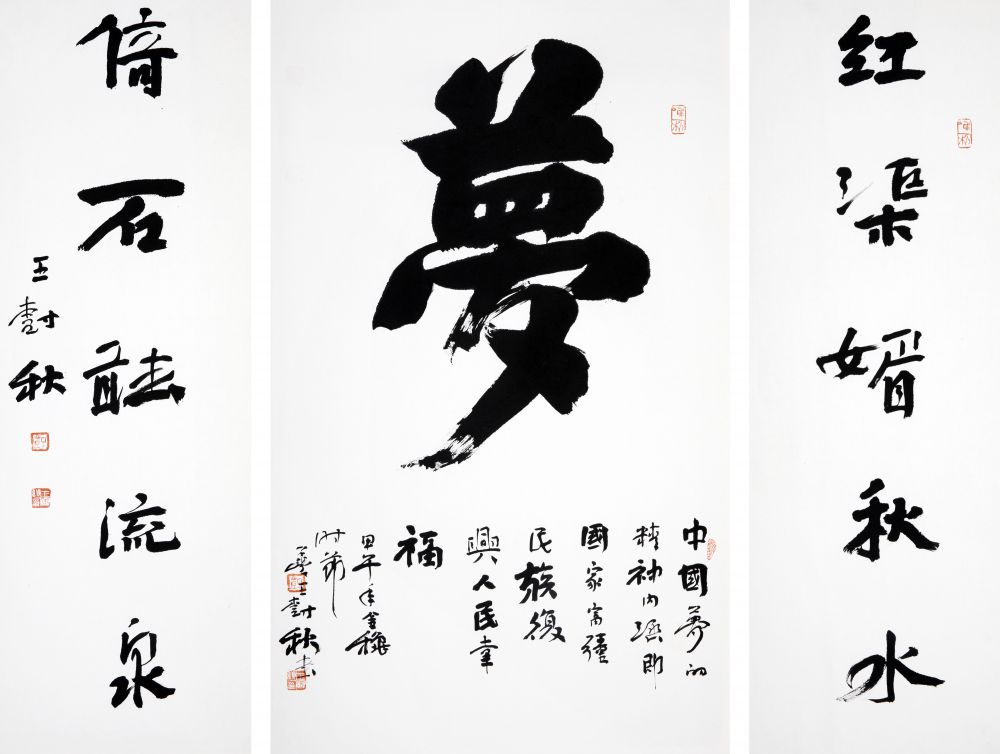 红渠媚秋水
夢
中國夢的
精神内涵即
國家富强
民族復
興人民幸
福
甲午年金穐
时節
王樹秋书
倚石聽流泉
王樹秋